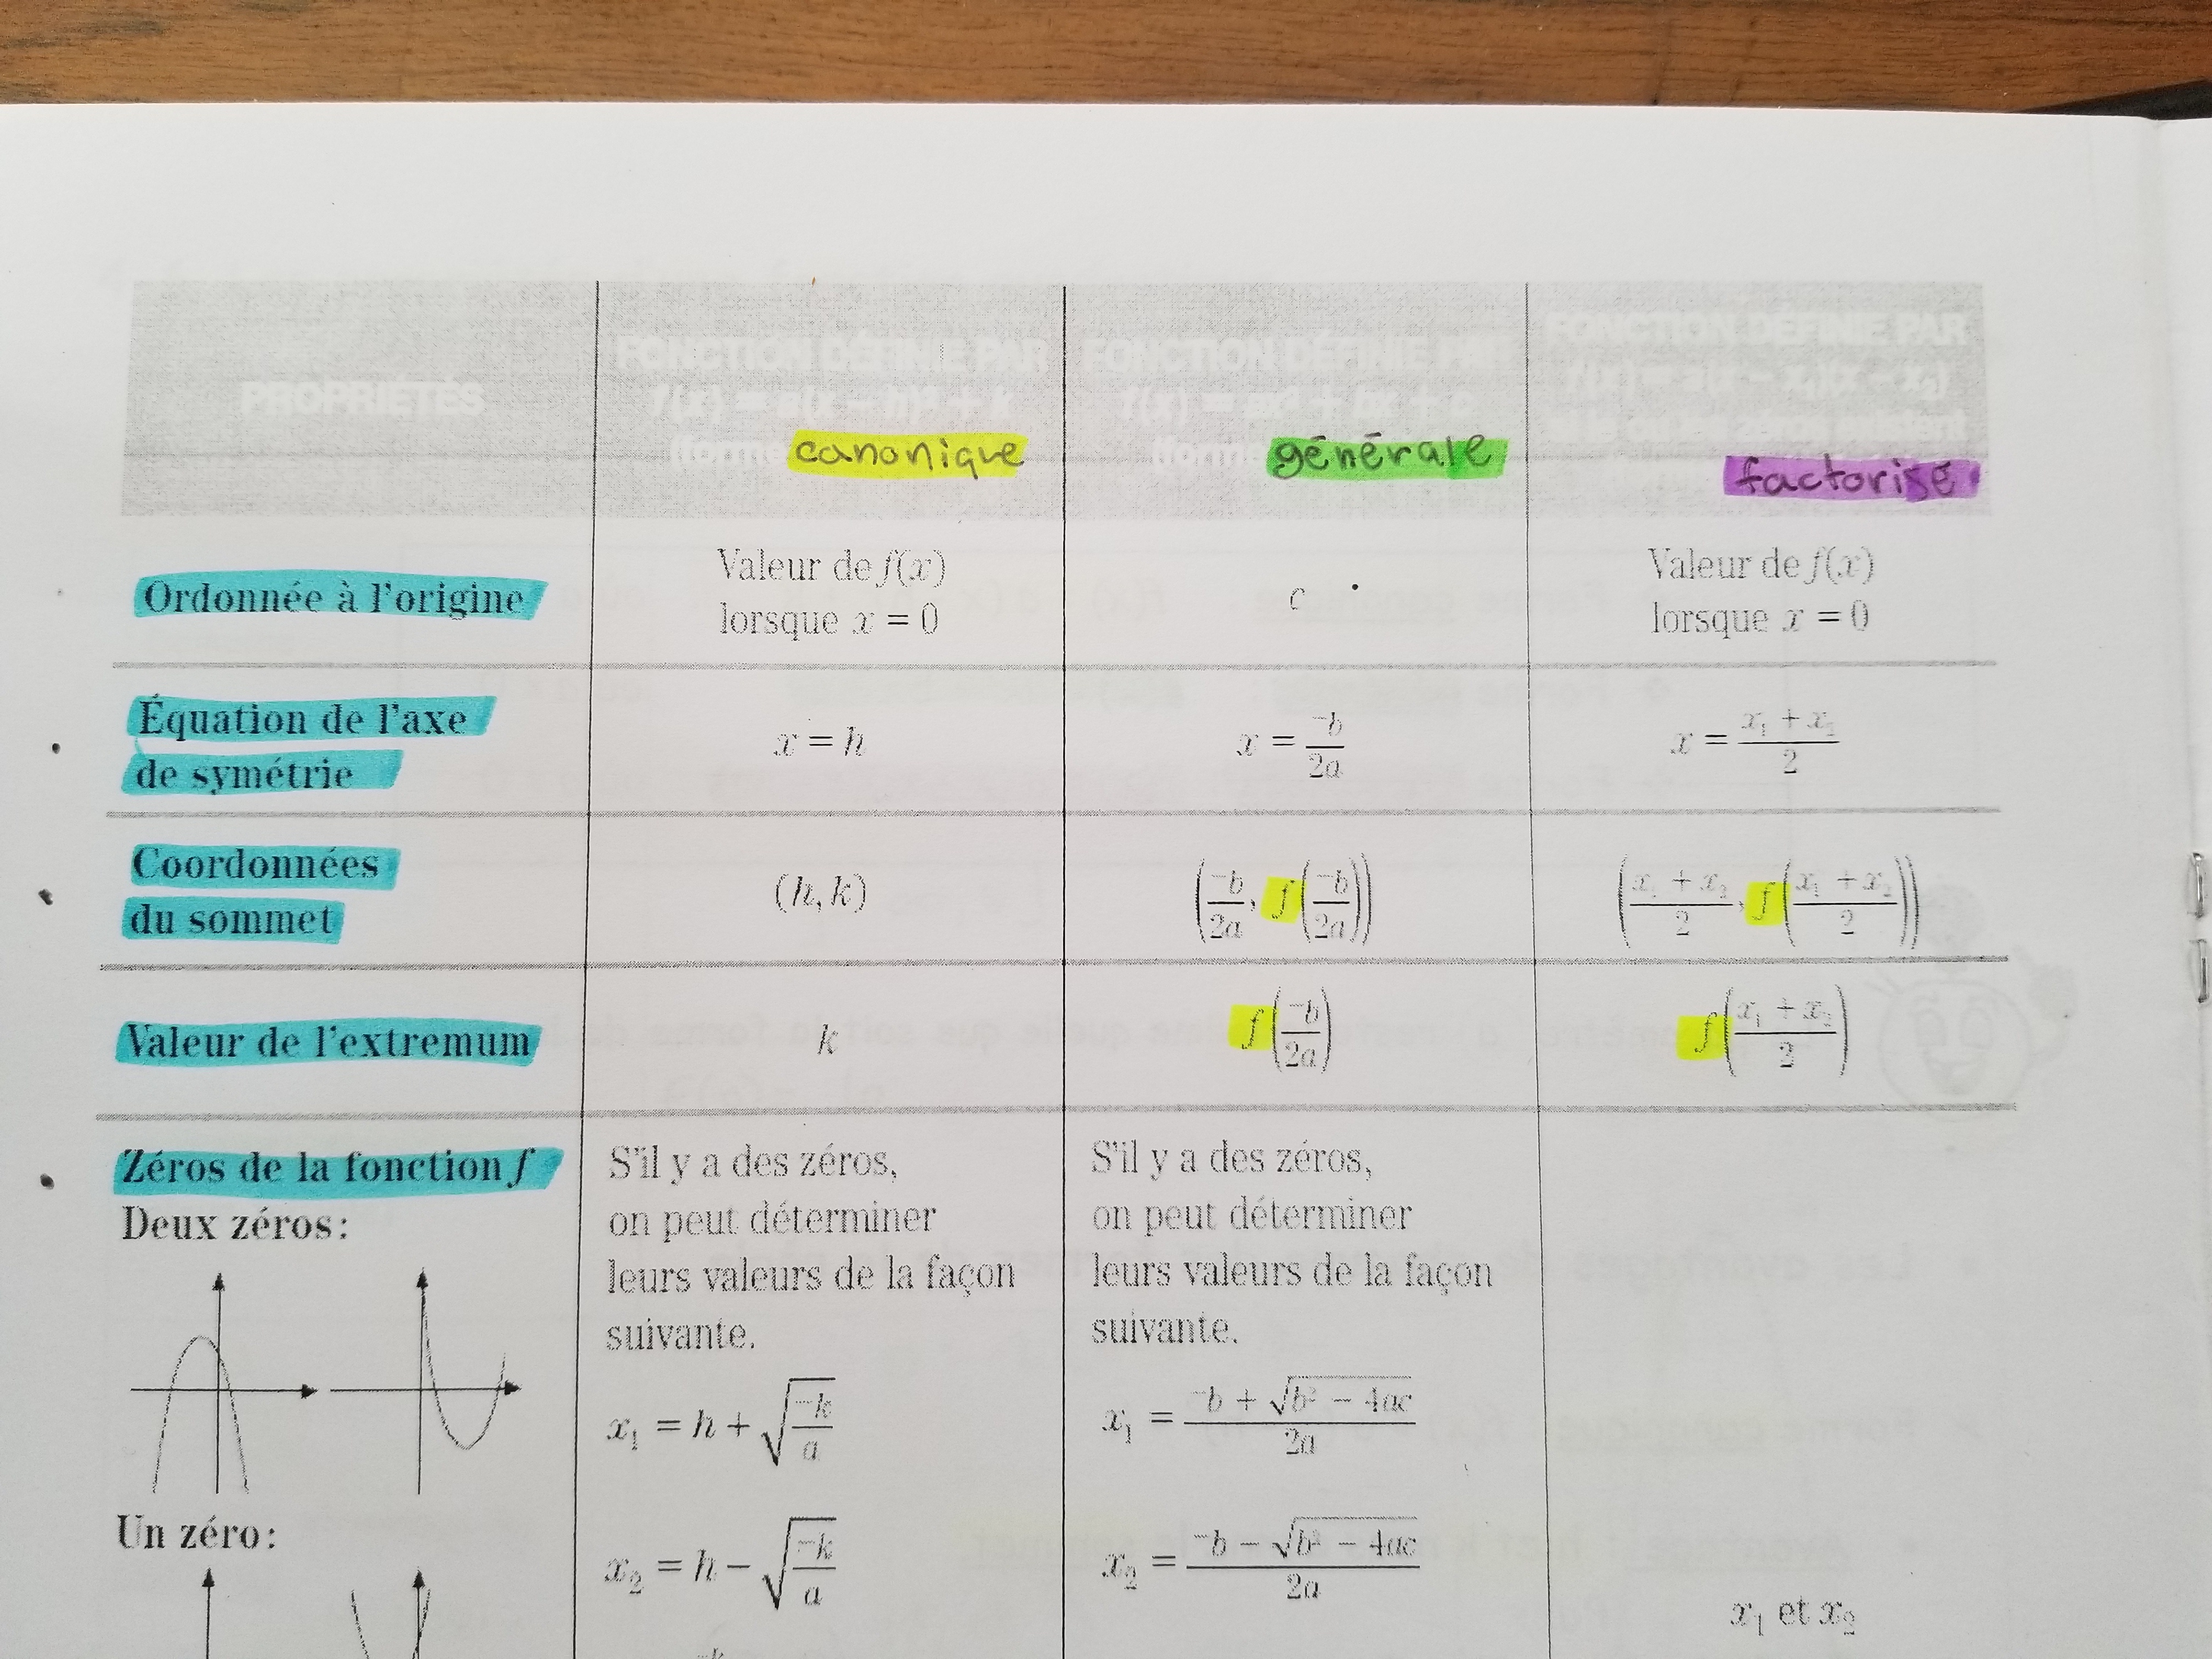 PROPRIÉTÉS
FONCTION DÉFINIE PAR
f(x) = a(x − h)² + k
(forme canonique
FONCTION DÉFINIE PAR
f(x) = ax² + bx + c
(forme générale
FONCTION DÉFINIE PAR
f(x) = a(x − x₁)(x − x₂)
si le ou les zéros existent
factorisé
Ordonnée à l'origine
Valeur de f(x)
lorsque x = 0
c
Valeur de f(x)
lorsque x = 0
Équation de l'axe
de symétrie
x = h
x = ⁻b/2a
x = (x₁ + x₂)/2
Coordonnées
du sommet
(h, k)
(⁻b/2a, f(⁻b/2a))
((x₁ + x₂)/2, f((x₁ + x₂)/2))
Valeur de l'extremum
k
f(⁻b/2a)
f((x₁ + x₂)/2)
Zéros de la fonction f
Deux zéros :
Un zéro :
S'il y a des zéros,
on peut déterminer
leurs valeurs de la façon
suivante.
x₁ = h + √(⁻k/a)
x₂ = h − √(⁻k/a)
S'il y a des zéros,
on peut déterminer
leurs valeurs de la façon
suivante.
x₁ = (⁻b + √(b² − 4ac))/2a
x₂ = (⁻b − √(b² − 4ac))/2a
x₁ et x₂